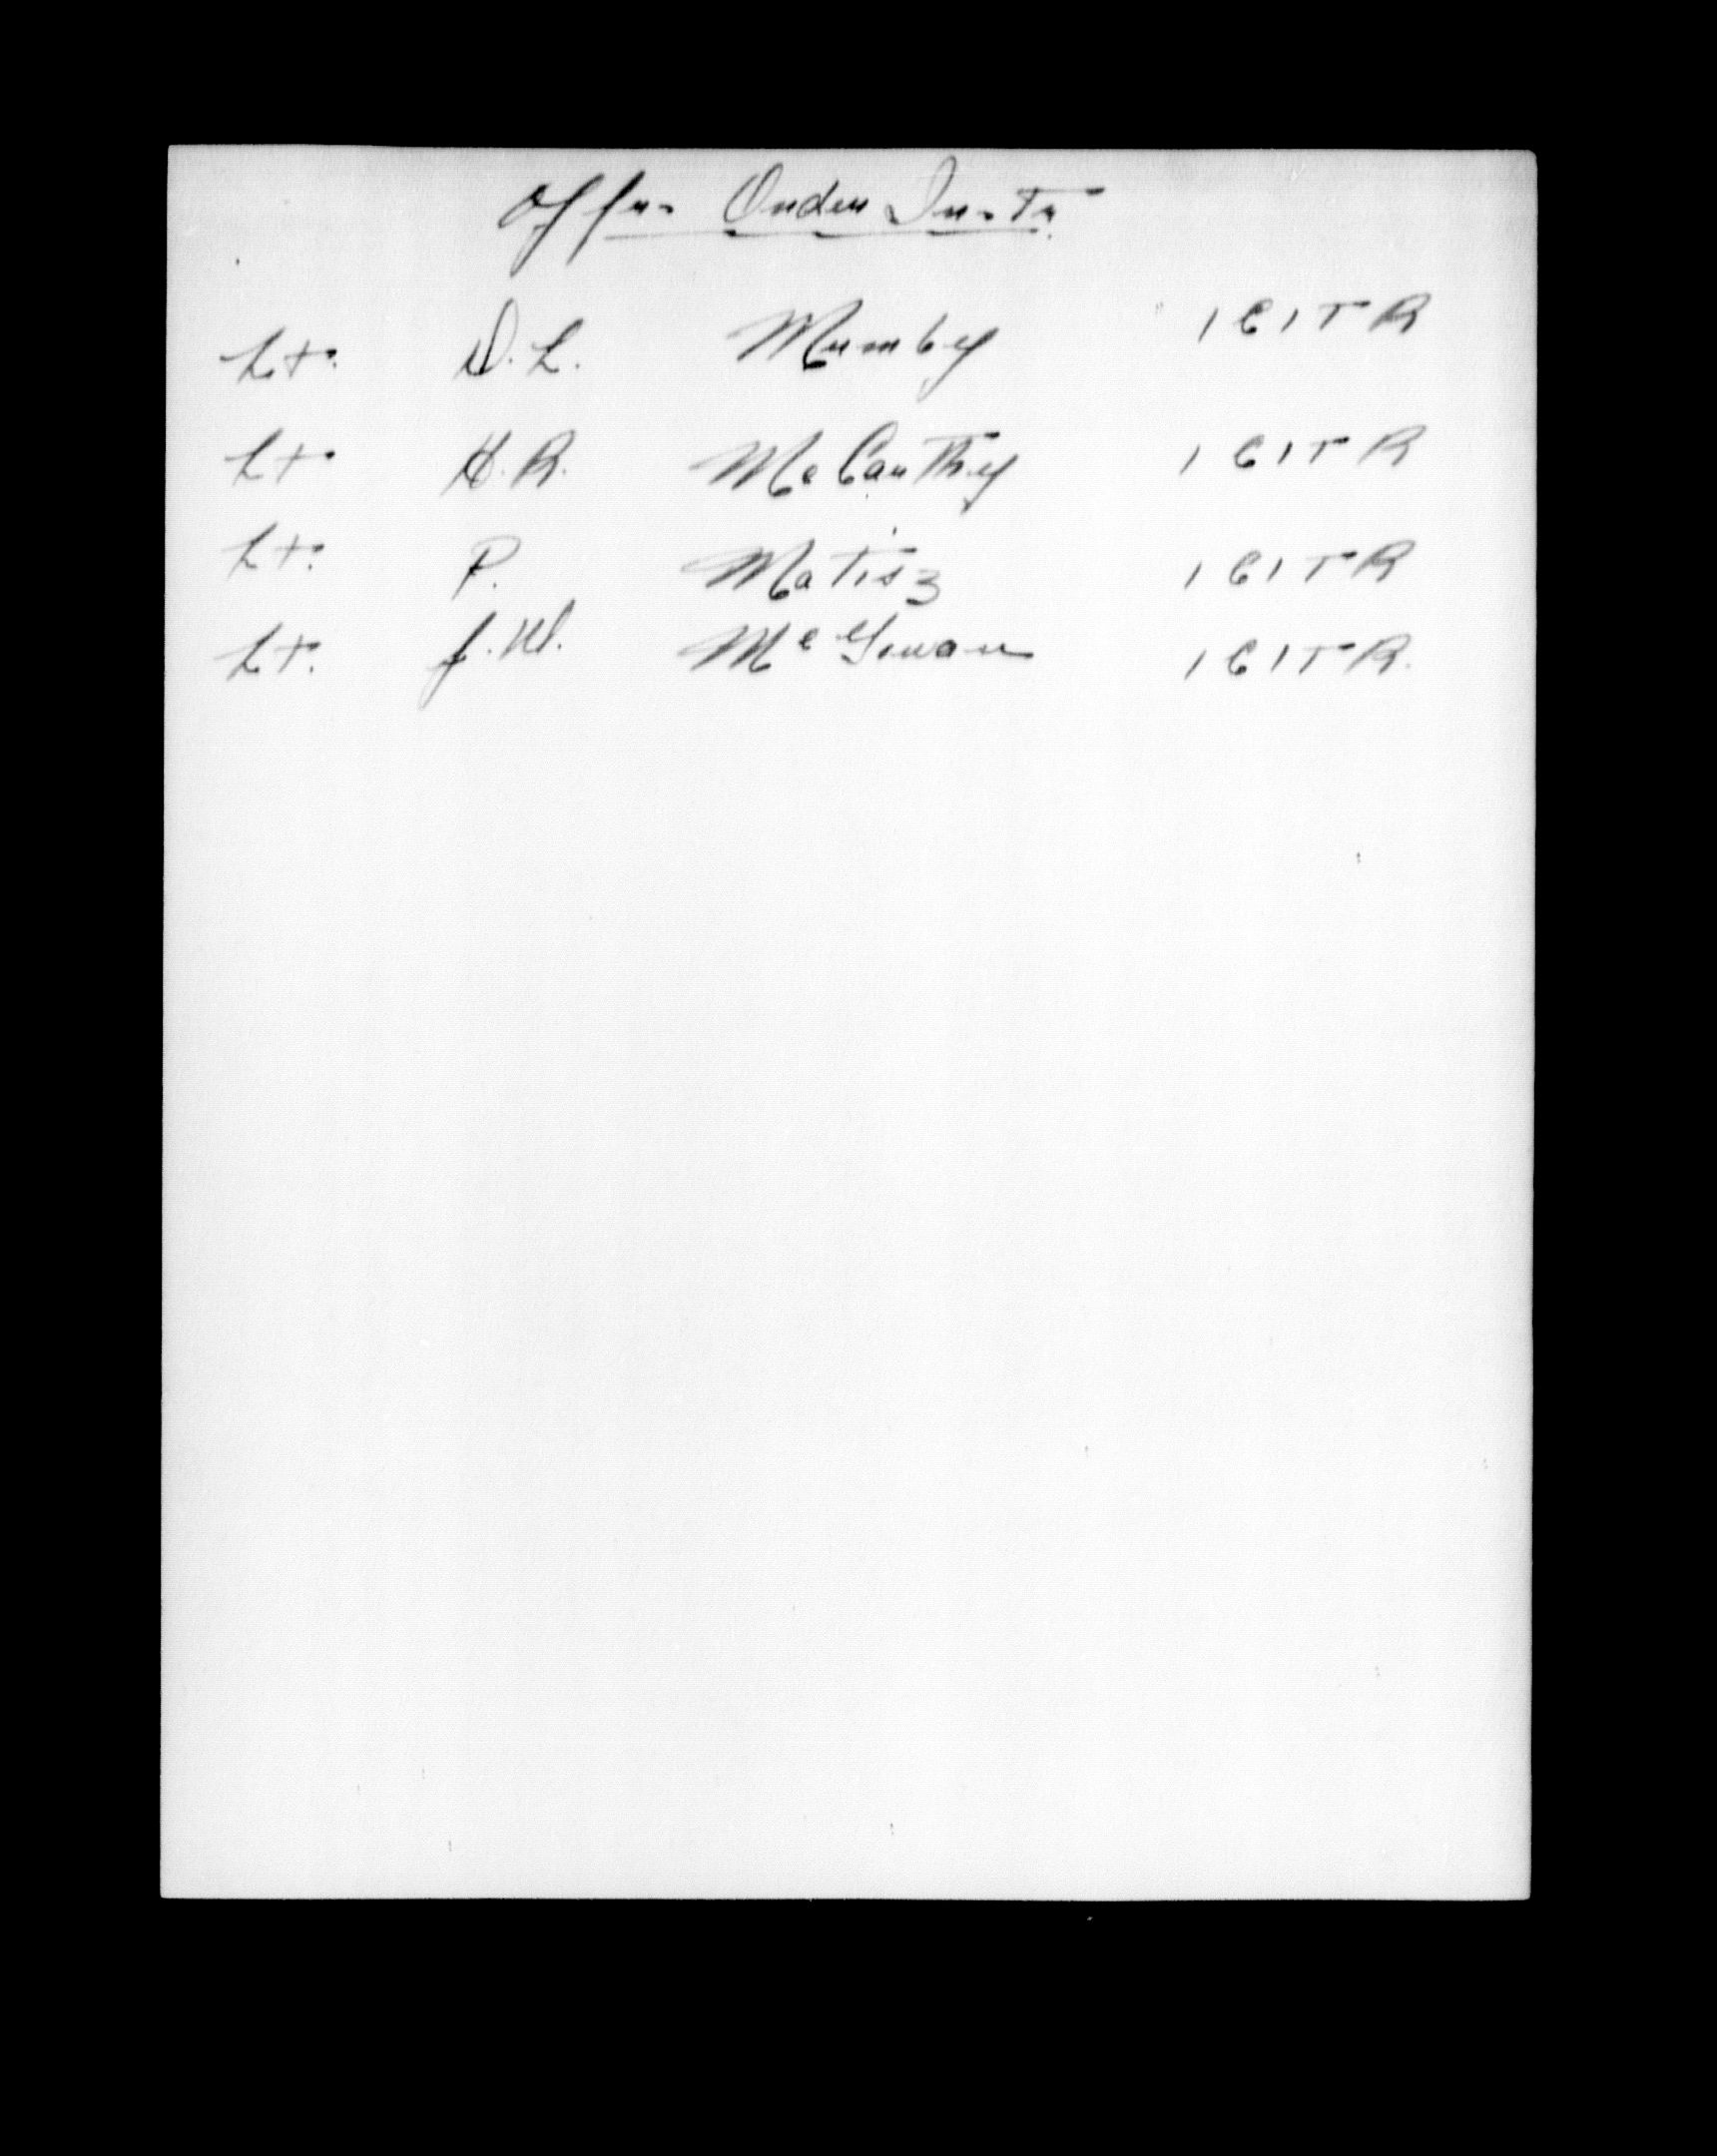 Offrs Under Instr
Lt. D. L. Mumby 1 CITR
Lt H. R. McCarthy 1 CITR
Lt. P. Matisz 1 CITR
Lt. J. W. McGowan 1 CITR.